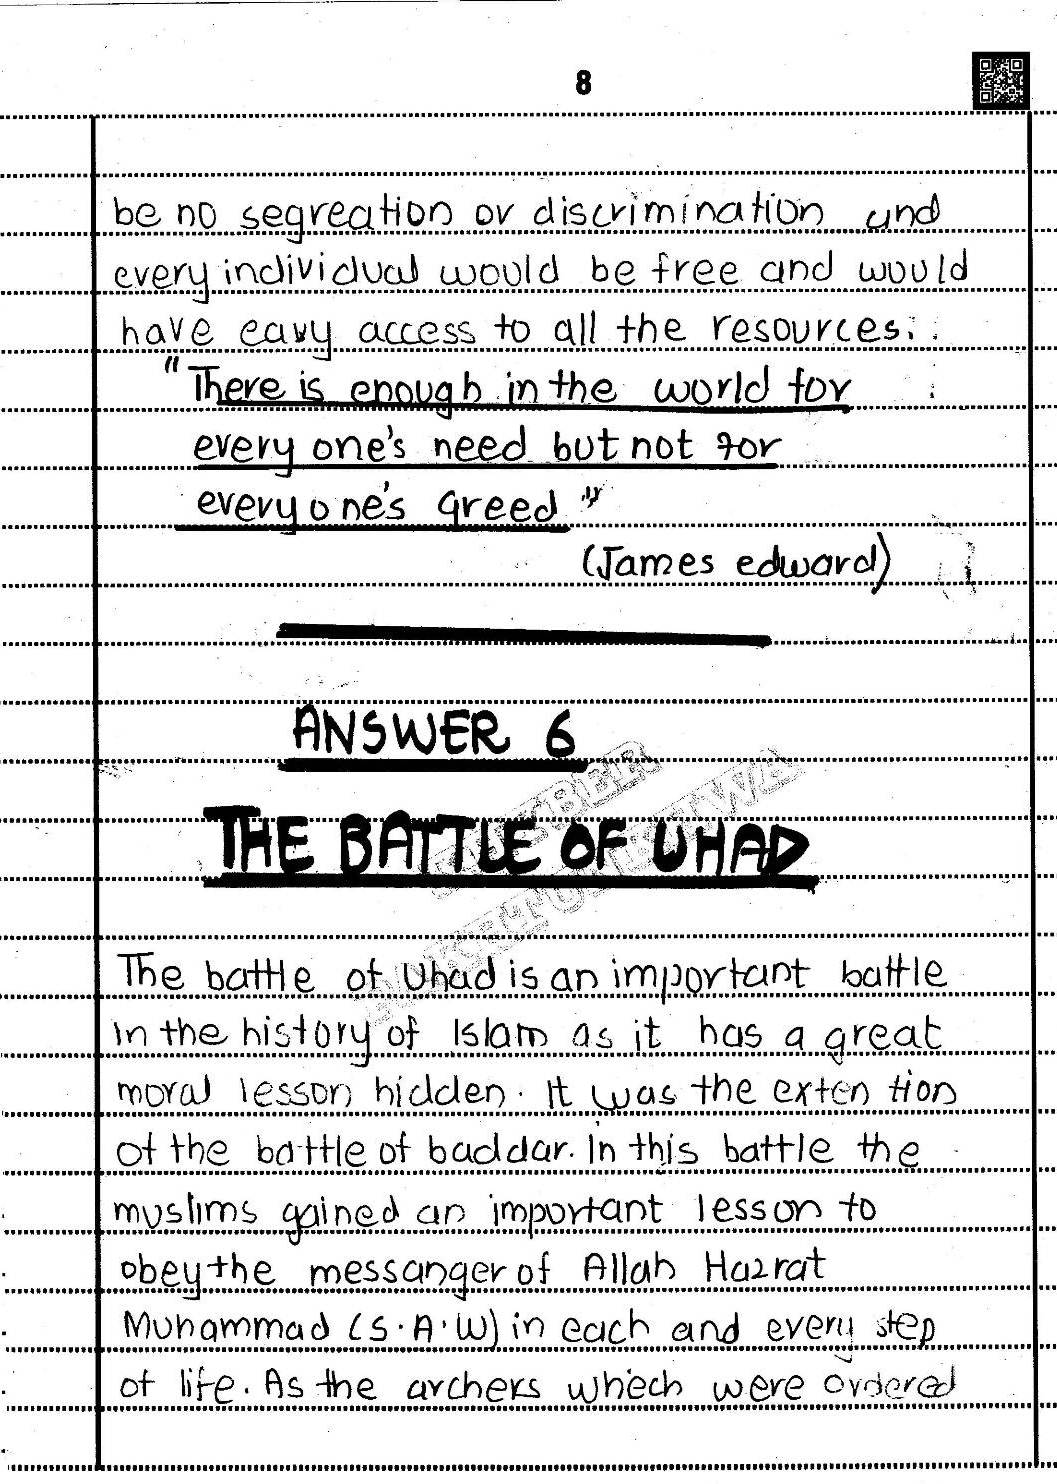 8
be no segreation or discrimination and
every individual would be free and would
have eavy access to all the resources.
"There is enough in the world for
every one's need but not for
everyone's greed"
(James edward)
ANSWER 6
THE BATTLE OF UHAD
The battle of Uhad is an important battle
in the history of Islam as it has a great
moral lesson hidden. It was the extention
of the battle of baddar. In this battle the
muslims gained an important lesson to
obey the messanger of Allah Hazrat
Muhammad (S.A.W) in each and every step
of life. As the archers which were ordered